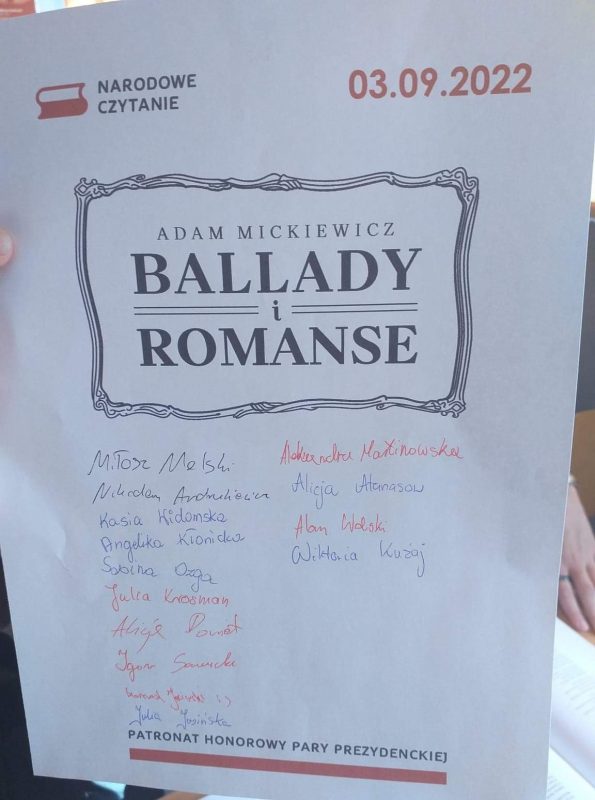 NARODOWE
CZYTANIE
03.09.2022
ADAM MICKIEWICZ
BALLADY
i
ROMANSE
Miłosz Melski
Nikodem
Kasia Widomska
Angelika Kłonicka
Sabina Ozga
Julia Krosman
Alicja
Igor Sawicki
:)
Julia Jasińska
Aleksandra Martinowska
Alicja Atanasow
Alan Wolski
Wiktoria Kużaj
PATRONAT HONOROWY PARY PREZYDENCKIEJ